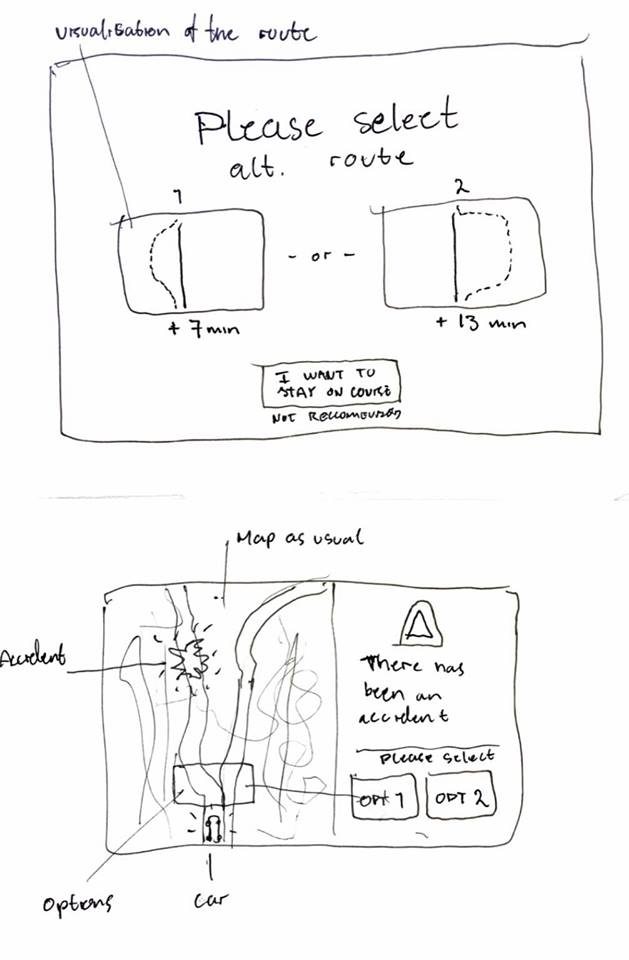 visualisation of the route
Please select
alt. route
1
2
- or -
+ 7 min
+ 13 min
I WANT TO
STAY ON COURSE
NOT RECOMMENDED
Map as usual
Accident
There has
been an
accident
Please select
OPT 1
OPT 2
options
car